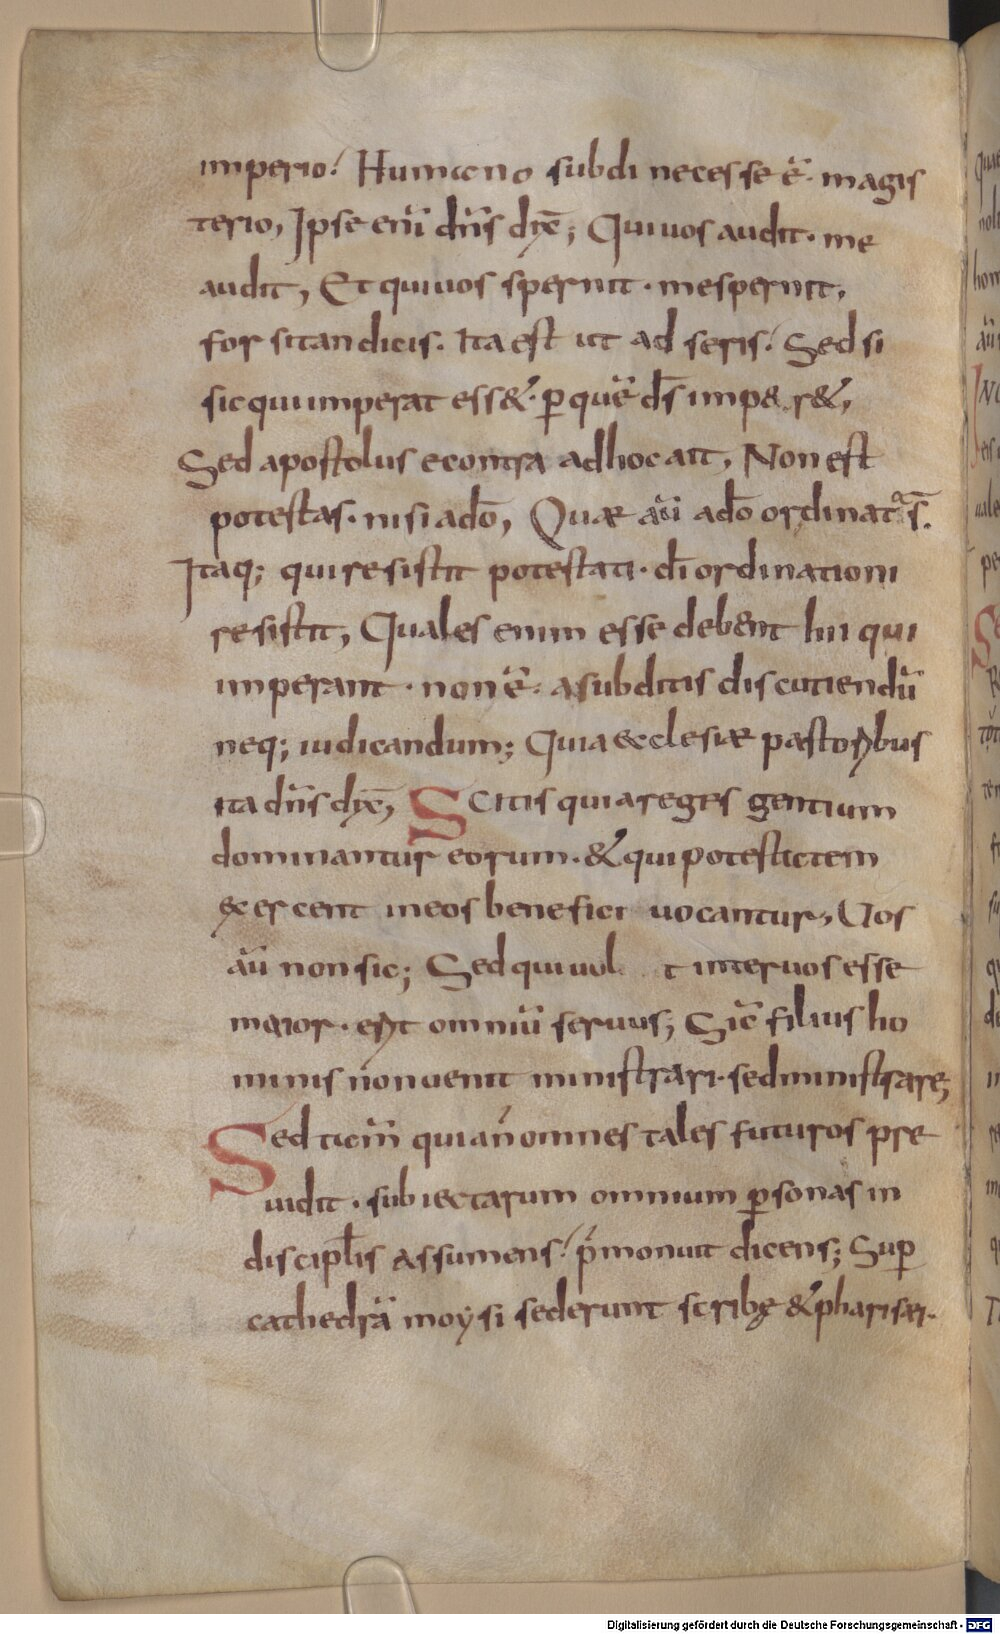 imperio! Humano subdi necesse ē· magis
terio, Ipse enī dn̄s dx̄; Qui uos audit· me
audit, Et qui uos spernit· me spernit,
forsitan dicis. Ita est ut adseris! Sed si
sic qui imperat ess&· ꝑ quē ds̄ imp&r&,
Sed apostolus econtra adhoc ait, Non est
potestas· nisi ado͞, Quae aū ado͞ ordinatᵃ s̄.
Itaq; qui resistit potestati· dī ordinationi
resistit, Quales enim esse debent hii qui
imperant· non ē· a subditis discutiendū
neq; iudicandum; Quia ecclesiae pastoribus
ita dn̄s dx̄, Scitis quia reges gentium
dominantur eorum· & qui potestatem
exercent in eos benefici uocantur, Uos
aū non sic; Sed qui uol t inter uos esse
maior· erit omniū seruus; Sic̄ filius ho
minis non uenit ministrari· sed ministrare;
Sed tam̄ quia n̄ omnes tales futuros prae
uidit· subiectarum omnium ꝑsonas in
discipl̄is assumens! p̄monuit dicens; Suꝑ
cathedrā moysi sederunt scribę & pharisaei·
Digitalisierung gefördert durch die Deutsche Forschungsgemeinschaft - DFG